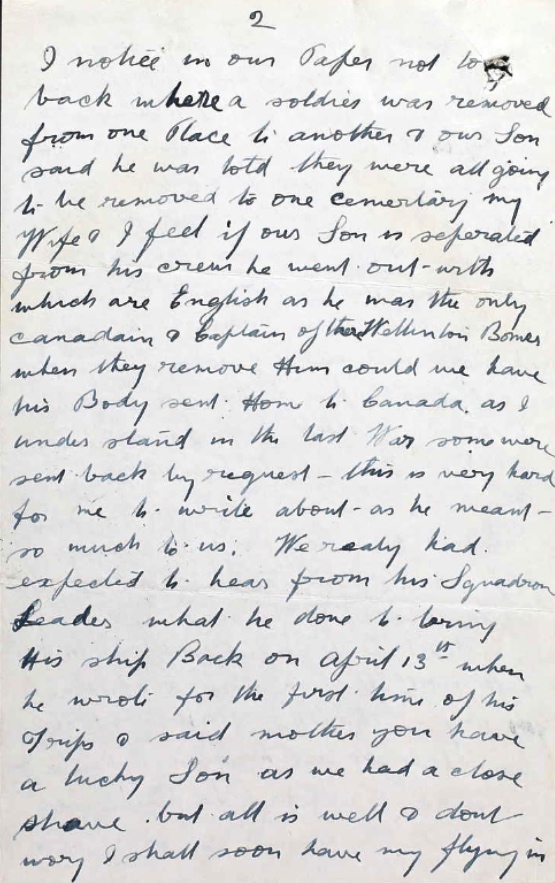 2
I notice in our Paper not to
back where a soldier was removed
from one Place to another & our Son
said he was told they were all going
to be removed to one cemertary my
Wife & I feel if our Son is seperated
from his crew he went out-with
which are English as he was the only
canadain & Captain of the Wellinton Bomer
when they remove Him could we have
his Body sent Hom to Canada, as I
under stand in the last War some were
sent back by request - this is very hard
for me to write about - as he meant -
so much to us. We realy had
expected to hear from his Squadron
Leader what he done to bring
His ship Back on April 13th when
he wrote for the first time of his
Trips & said mother you have
a lucky Son as we had a close
shave but all is well & dont
wory I shall soon have my flying in